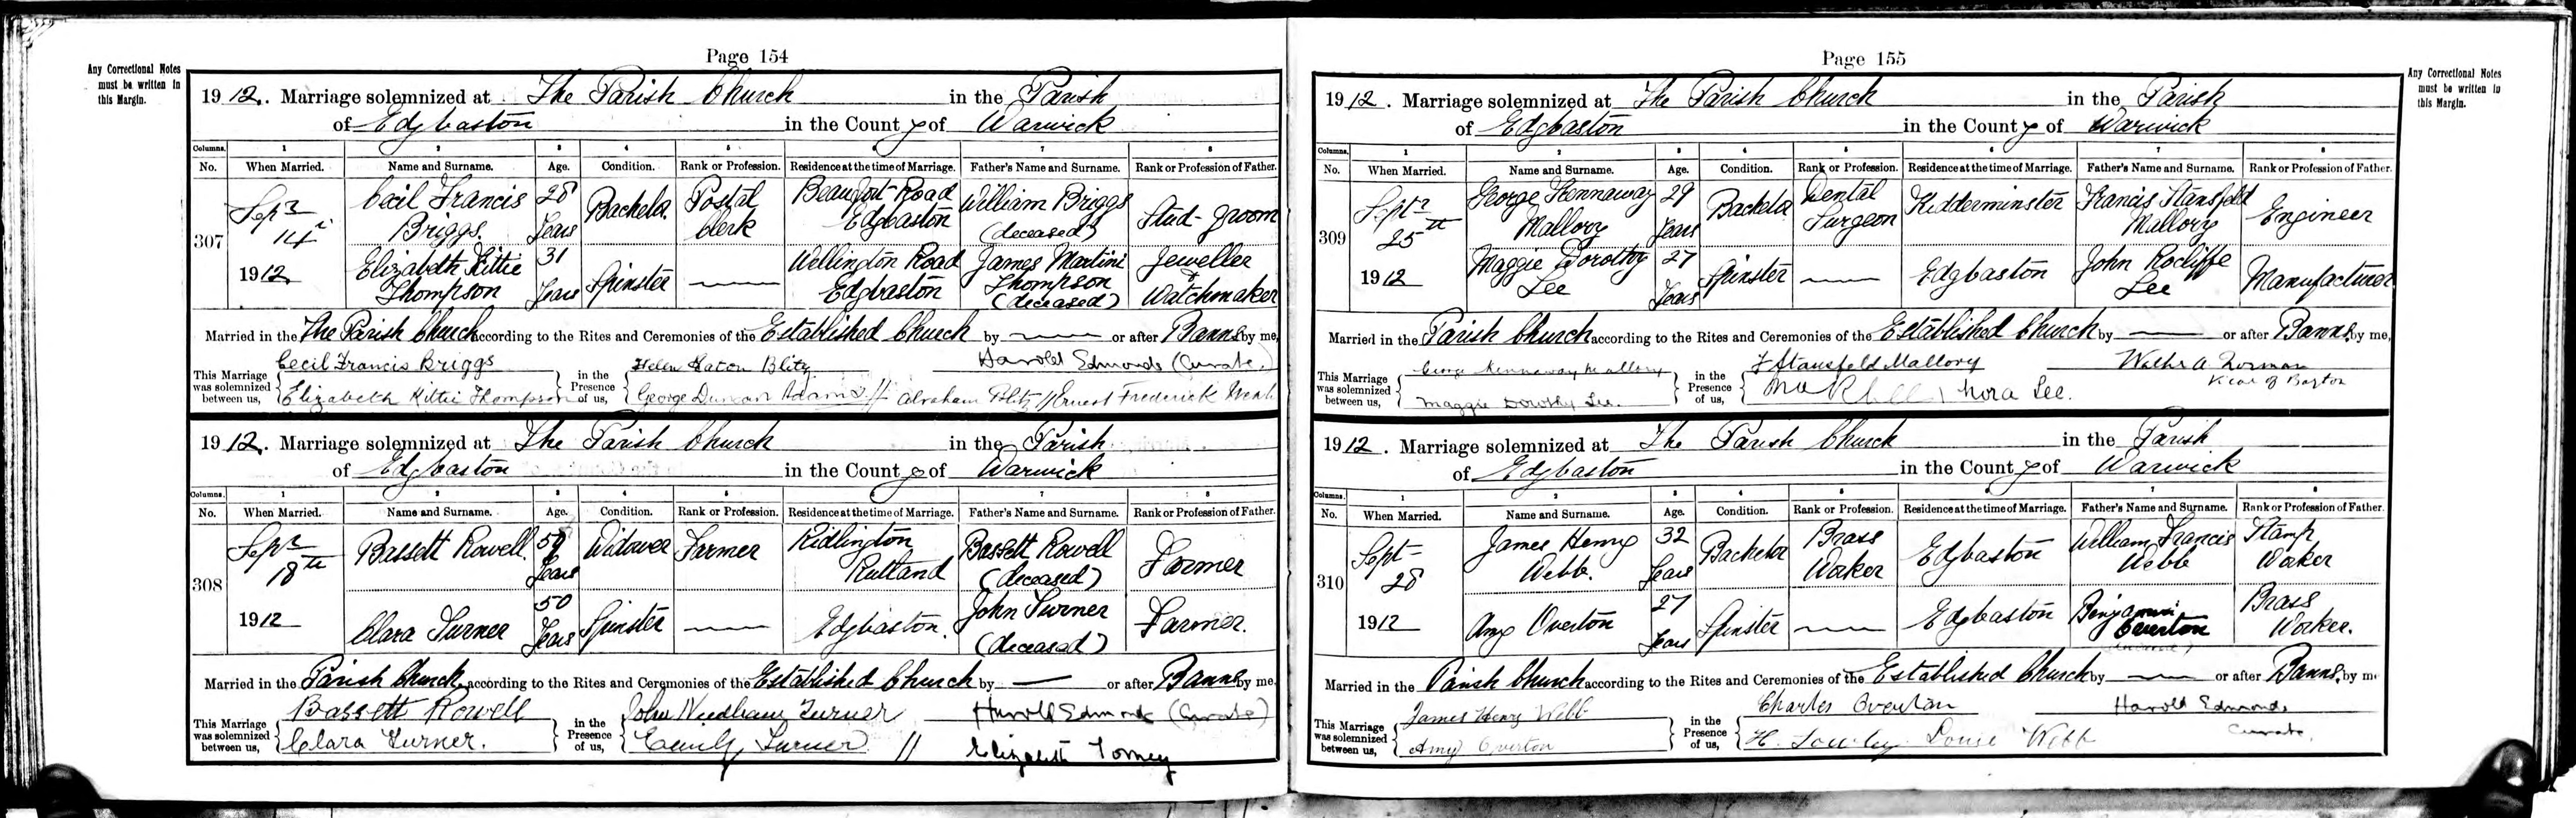 Page 154
Any Correctional Notes
must be written in
this Margin.
1912. Marriage solemnized at The Parish Church in the Parish
of Edgbaston in the County of Warwick
Columns. 1 2 3 4 5 6 7 8
No. When Married. Name and Surname. Age. Condition. Rank or Profession. Residence at the time of Marriage. Father's Name and Surname. Rank or Profession of Father.
307 Septr 14 1912 Cecil Francis Briggs 28 Years Bachelor Postal Clerk Beaufort Road Edgbaston William Briggs (deceased) Stud-groom
Elizabeth Kittie Thompson 31 Years Spinster Wellington Road Edgbaston James Martini Thompson (deceased) Jeweller & Watchmaker
Married in the The Parish Church according to the Rites and Ceremonies of the Established Church by — or after Banns by me,
This Marriage was solemnized between us, Cecil Francis Briggs Elizabeth Kittie Thompson in the Presence of us, Helen Eaton Blitz George Duncan Adams // Abraham Blitz // Ernest Frederick Harold Edmonds (Curate.)
1912. Marriage solemnized at The Parish Church in the Parish
of Edgbaston in the County of Warwick
Columns. 1 2 3 4 5 6 7 8
No. When Married. Name and Surname. Age. Condition. Rank or Profession. Residence at the time of Marriage. Father's Name and Surname. Rank or Profession of Father.
308 Septr 18th 1912 Bassett Rowell Years Widower Farmer Ridlington Rutland Bassett Rowell (deceased) Farmer
Clara Turner 50 Years Spinster Edgbaston. John Turner (deceased) Farmer.
Married in the Parish Church according to the Rites and Ceremonies of the Established Church by — or after Banns by me
This Marriage was solemnized between us, Bassett Rowell Clara Turner. in the Presence of us, John Needham Turner Emily Turner // Elizabeth Torney Harold Edmonds (Curate)
Page 155
Any Correctional Notes
must be written in
this Margin.
1912. Marriage solemnized at The Parish Church in the Parish
of Edgbaston in the County of Warwick
Columns. 1 2 3 4 5 6 7 8
No. When Married. Name and Surname. Age. Condition. Rank or Profession. Residence at the time of Marriage. Father's Name and Surname. Rank or Profession of Father.
309 Septr 25th 1912 George Kennaway Mallory 29 Years Bachelor Dental Surgeon Kidderminster Francis Stansfeld Mallory Engineer
Maggie Dorothy Lee 27 Years Spinster Edgbaston John Rocliffe Lee Manufacturer
Married in the Parish Church according to the Rites and Ceremonies of the Established Church by — or after Banns by me,
This Marriage was solemnized between us, George Kennaway Mallory Maggie Dorothy Lee. in the Presence of us, F Stansfeld Mallory Nora Lee. Walter A Norman Vicar of Barton
1912. Marriage solemnized at The Parish Church in the Parish
of Edgbaston in the County of Warwick
Columns. 1 2 3 4 5 6 7 8
No. When Married. Name and Surname. Age. Condition. Rank or Profession. Residence at the time of Marriage. Father's Name and Surname. Rank or Profession of Father.
310 Sept 28 1912 James Henry Webb. 32 Years Bachelor Brass Worker Edgbaston William Francis Webb Stamp Worker
Amy Overton 27 Years Spinster Edgbaston Benjamin Overton Brass Worker.
Married in the Parish Church according to the Rites and Ceremonies of the Established Church by — or after Banns by me
This Marriage was solemnized between us, James Henry Webb Amy Overton in the Presence of us, Charles Overton H. Louise Webb Harold Edmonds Curate.